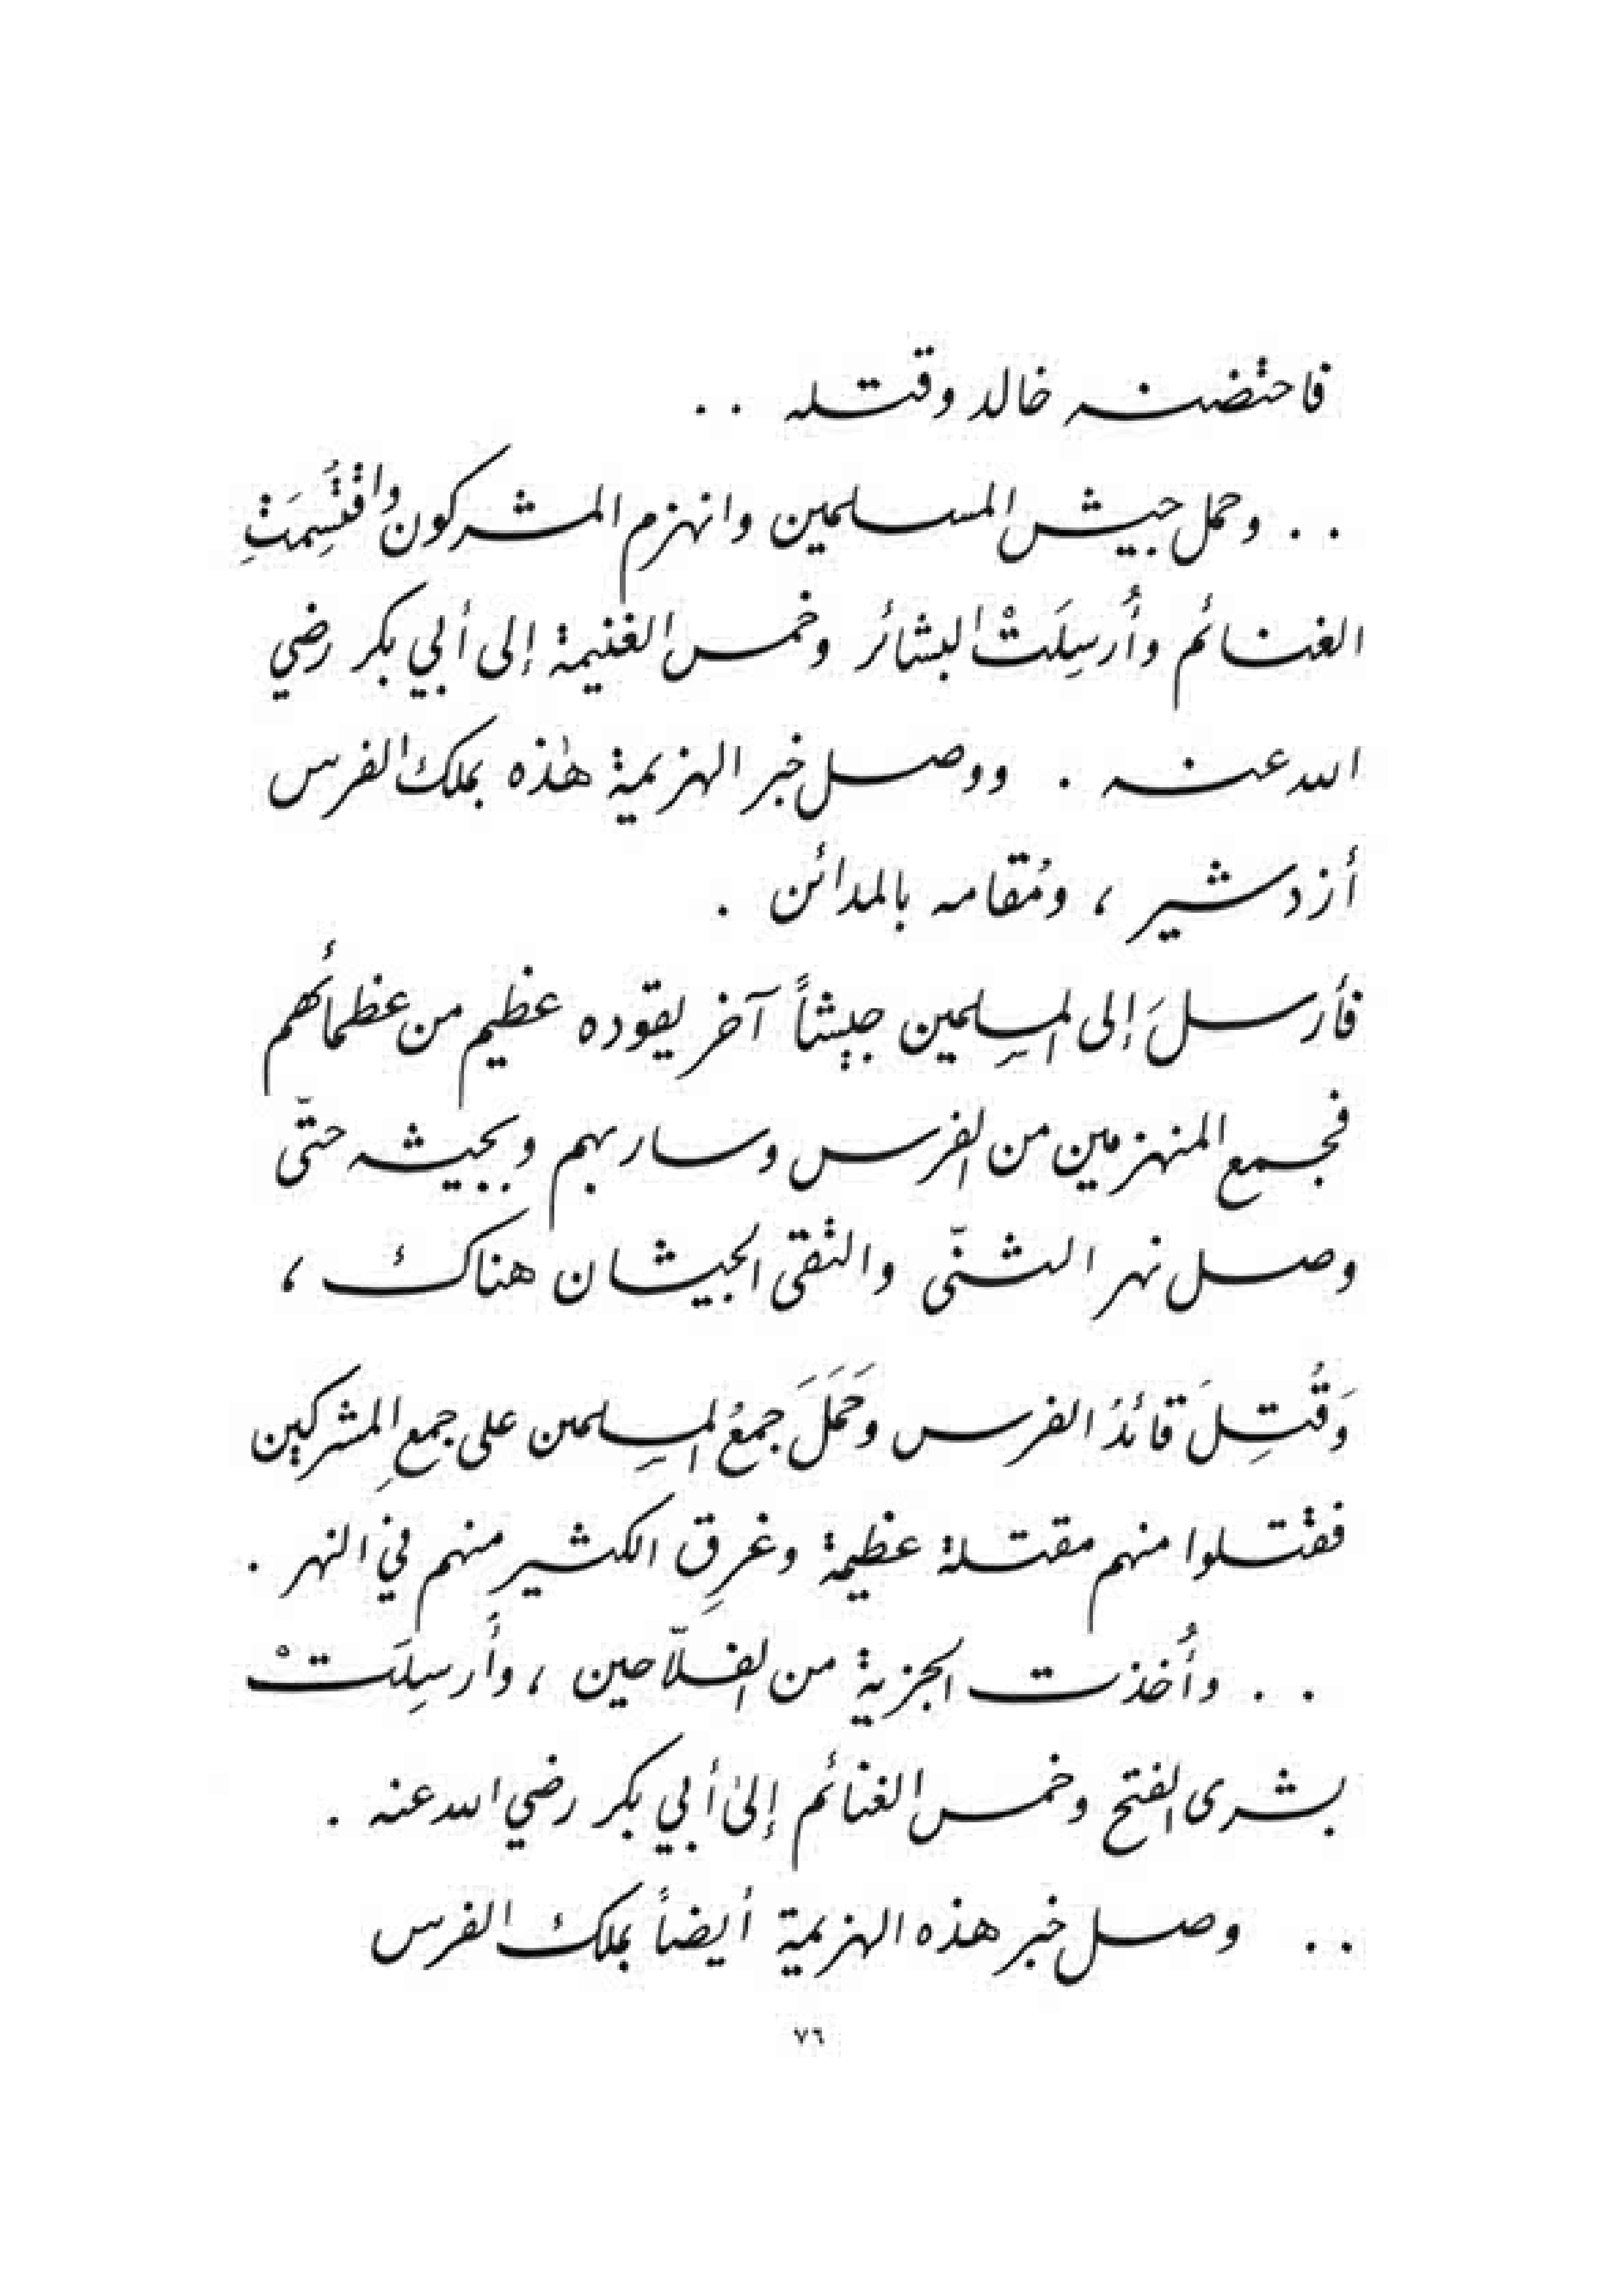 فاحتضنه خالد وقتله ..
.. وحمل جيش المسلمين وانهزم المشركون واقتُسِمَتِ
الغنائم وأُرسِلَتْ البشائر وخمس الغنيمة إلى أبي بكر رضي
الله عنه . ووصل خبر الهزيمة هٰذه بملك الفرس
أزدشير ، ومُقامه بالمدائن .
فأرسلَ إلى المسلِمين جيشاً آخر يقوده عظيم من عظمائهم
فجمع المنهزمين من الفرس وسار بهم وبجيشه حتّى
وصل نهر الثنّي والتقى الجيشان هناك ،
وَقُتِلَ قائدُ الفرس وحَمَلَ جمعُ المسلِمين على جمعِ المشركين
فقتلوا منهم مقتلة عظيمة وغرِق الكثير منهم في النهر .
.. وأُخذت الجزية من الفلّاحين ، وأُرسِلَتْ
بشرى الفتح وخمس الغنائم إلىٰ أبي بكر رضي الله عنه .
.. وصل خبر هذه الهزيمة أيضاً بملك الفرس
٧٦